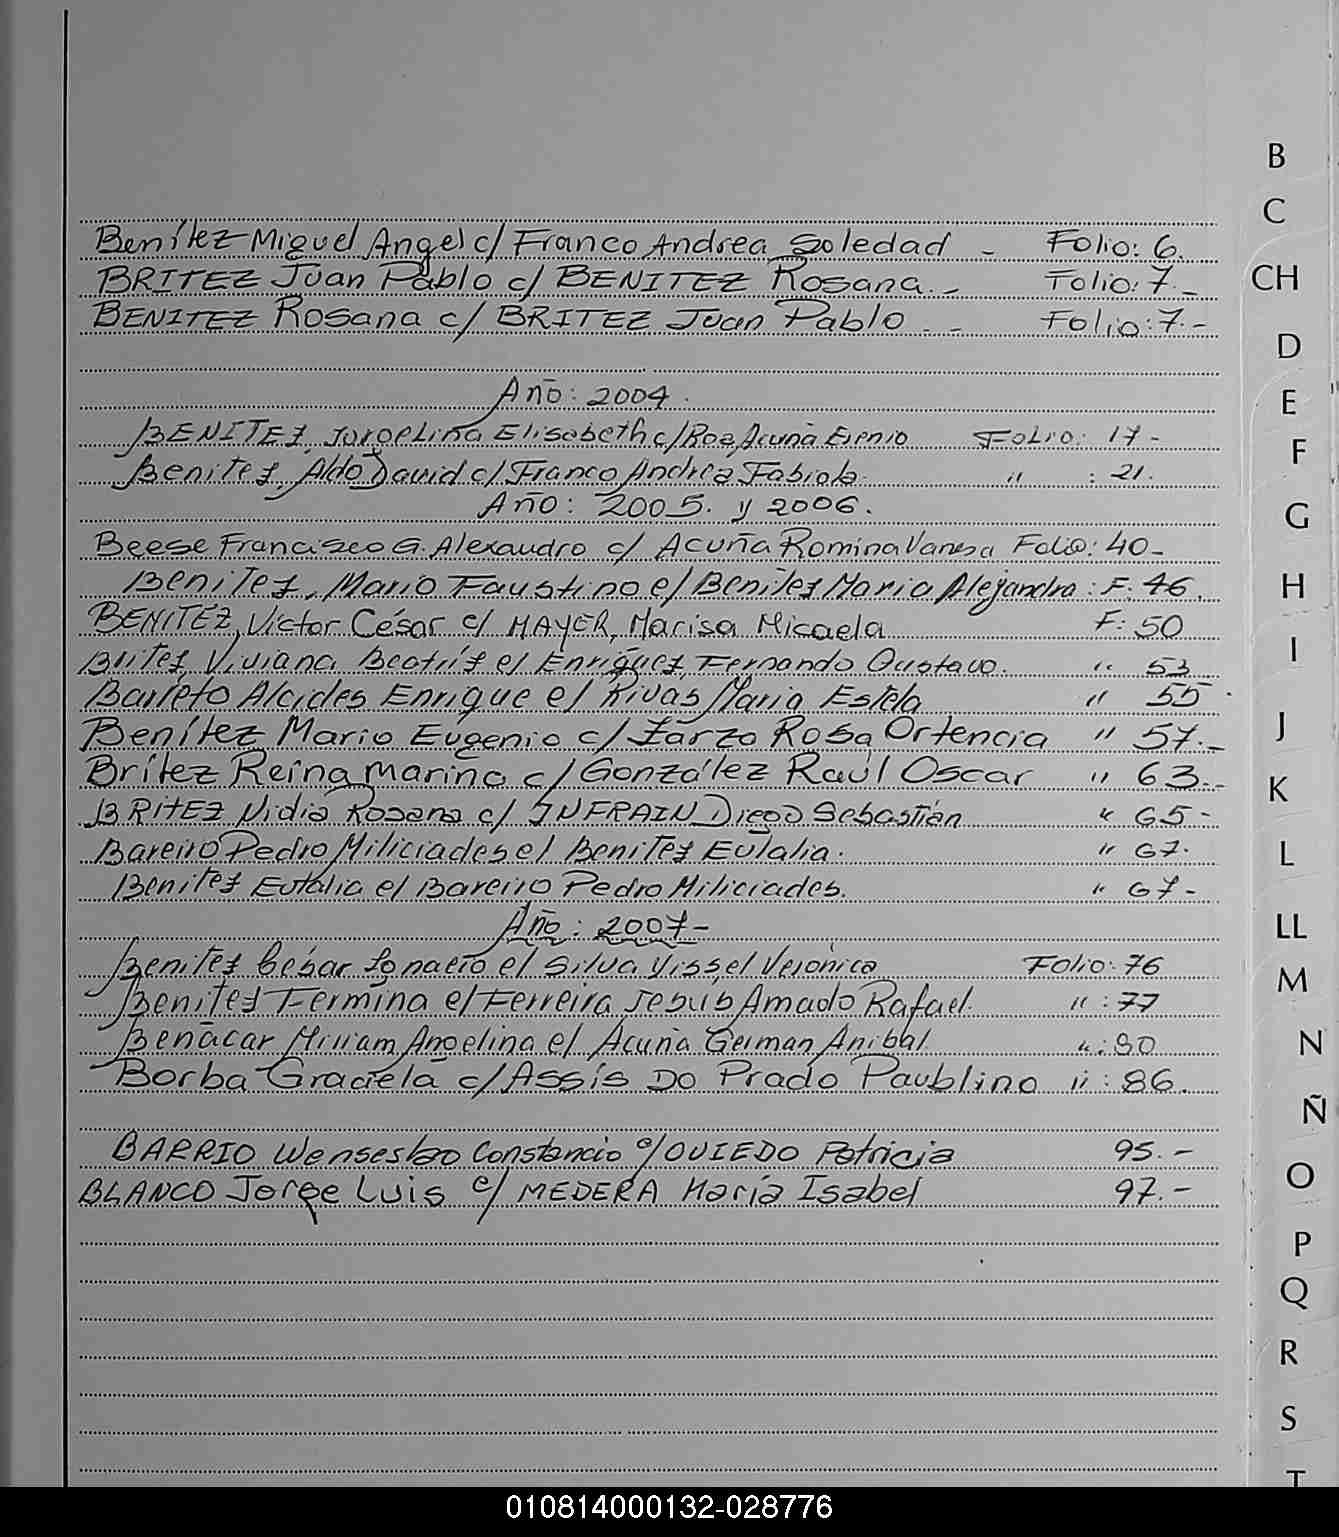 Benítez Miguel Angel c/ Franco Andrea Soledad - Folio: 6.
BRITEZ Juan Pablo c/ BENITEZ Rosana. - Folio: 7. -
BENITEZ Rosana c/ BRITEZ Juan Pablo - Folio: 7. -
Año: 2004.
BENITEZ, Jorgelina Elisabeth c/ Roa, Acuña Eenio Folio: 17 -
Benitez, Aldo David c/ Franco Andrea Fabiola. " : 21.
Año: 2005. y 2006.
Beese Francisco G. Alexandro c/ Acuña Romina Vanesa Folio: 40 -
Benitez, Mario Faustino c/ Benitez Maria Alejandra: F: 46.
BENITEZ, Victor César c/ MAYER, Marisa Micaela F: 50
Britez, Viviana Beatríz c/ Enriquez, Fernando Gustavo. " 53
Barreto Alcides Enrique c/ Rivas Maria Estela " 55
Benítez Mario Eugenio c/ Zarzo Rosa Ortencia " 57. -
Brítez Reina Marina c/ González Raúl Oscar " 63. -
BRITEZ Nidia Rosana c/ INFRAIN Diego Sebastián " 65 -
Bareiro Pedro Miliciades c/ Benitez Eulalia. " 67.
Benitez Eulalia c/ Bareiro Pedro Miliciades. " 67 -
Año: 2007 -
Benitez César Ignacio c/ Silva Yissel Verónica Folio: 76
Benitez Fermina c/ Ferreira Jesús Amado Rafael. " : 77
Benacar Miriam Angelina c/ Acuña German Anibal. " : 80
Borba Graciela c/ Assis Do Prado Paublino " : 86.
BARRIO Wenseslao Constancio c/ OVIEDO Patricia 95. -
BLANCO Jorge Luis c/ MEDERA María Isabel 97. -
B
C
CH
D
E
F
G
H
I
J
K
L
LL
M
N
Ñ
O
P
Q
R
S
T
010814000132-028776